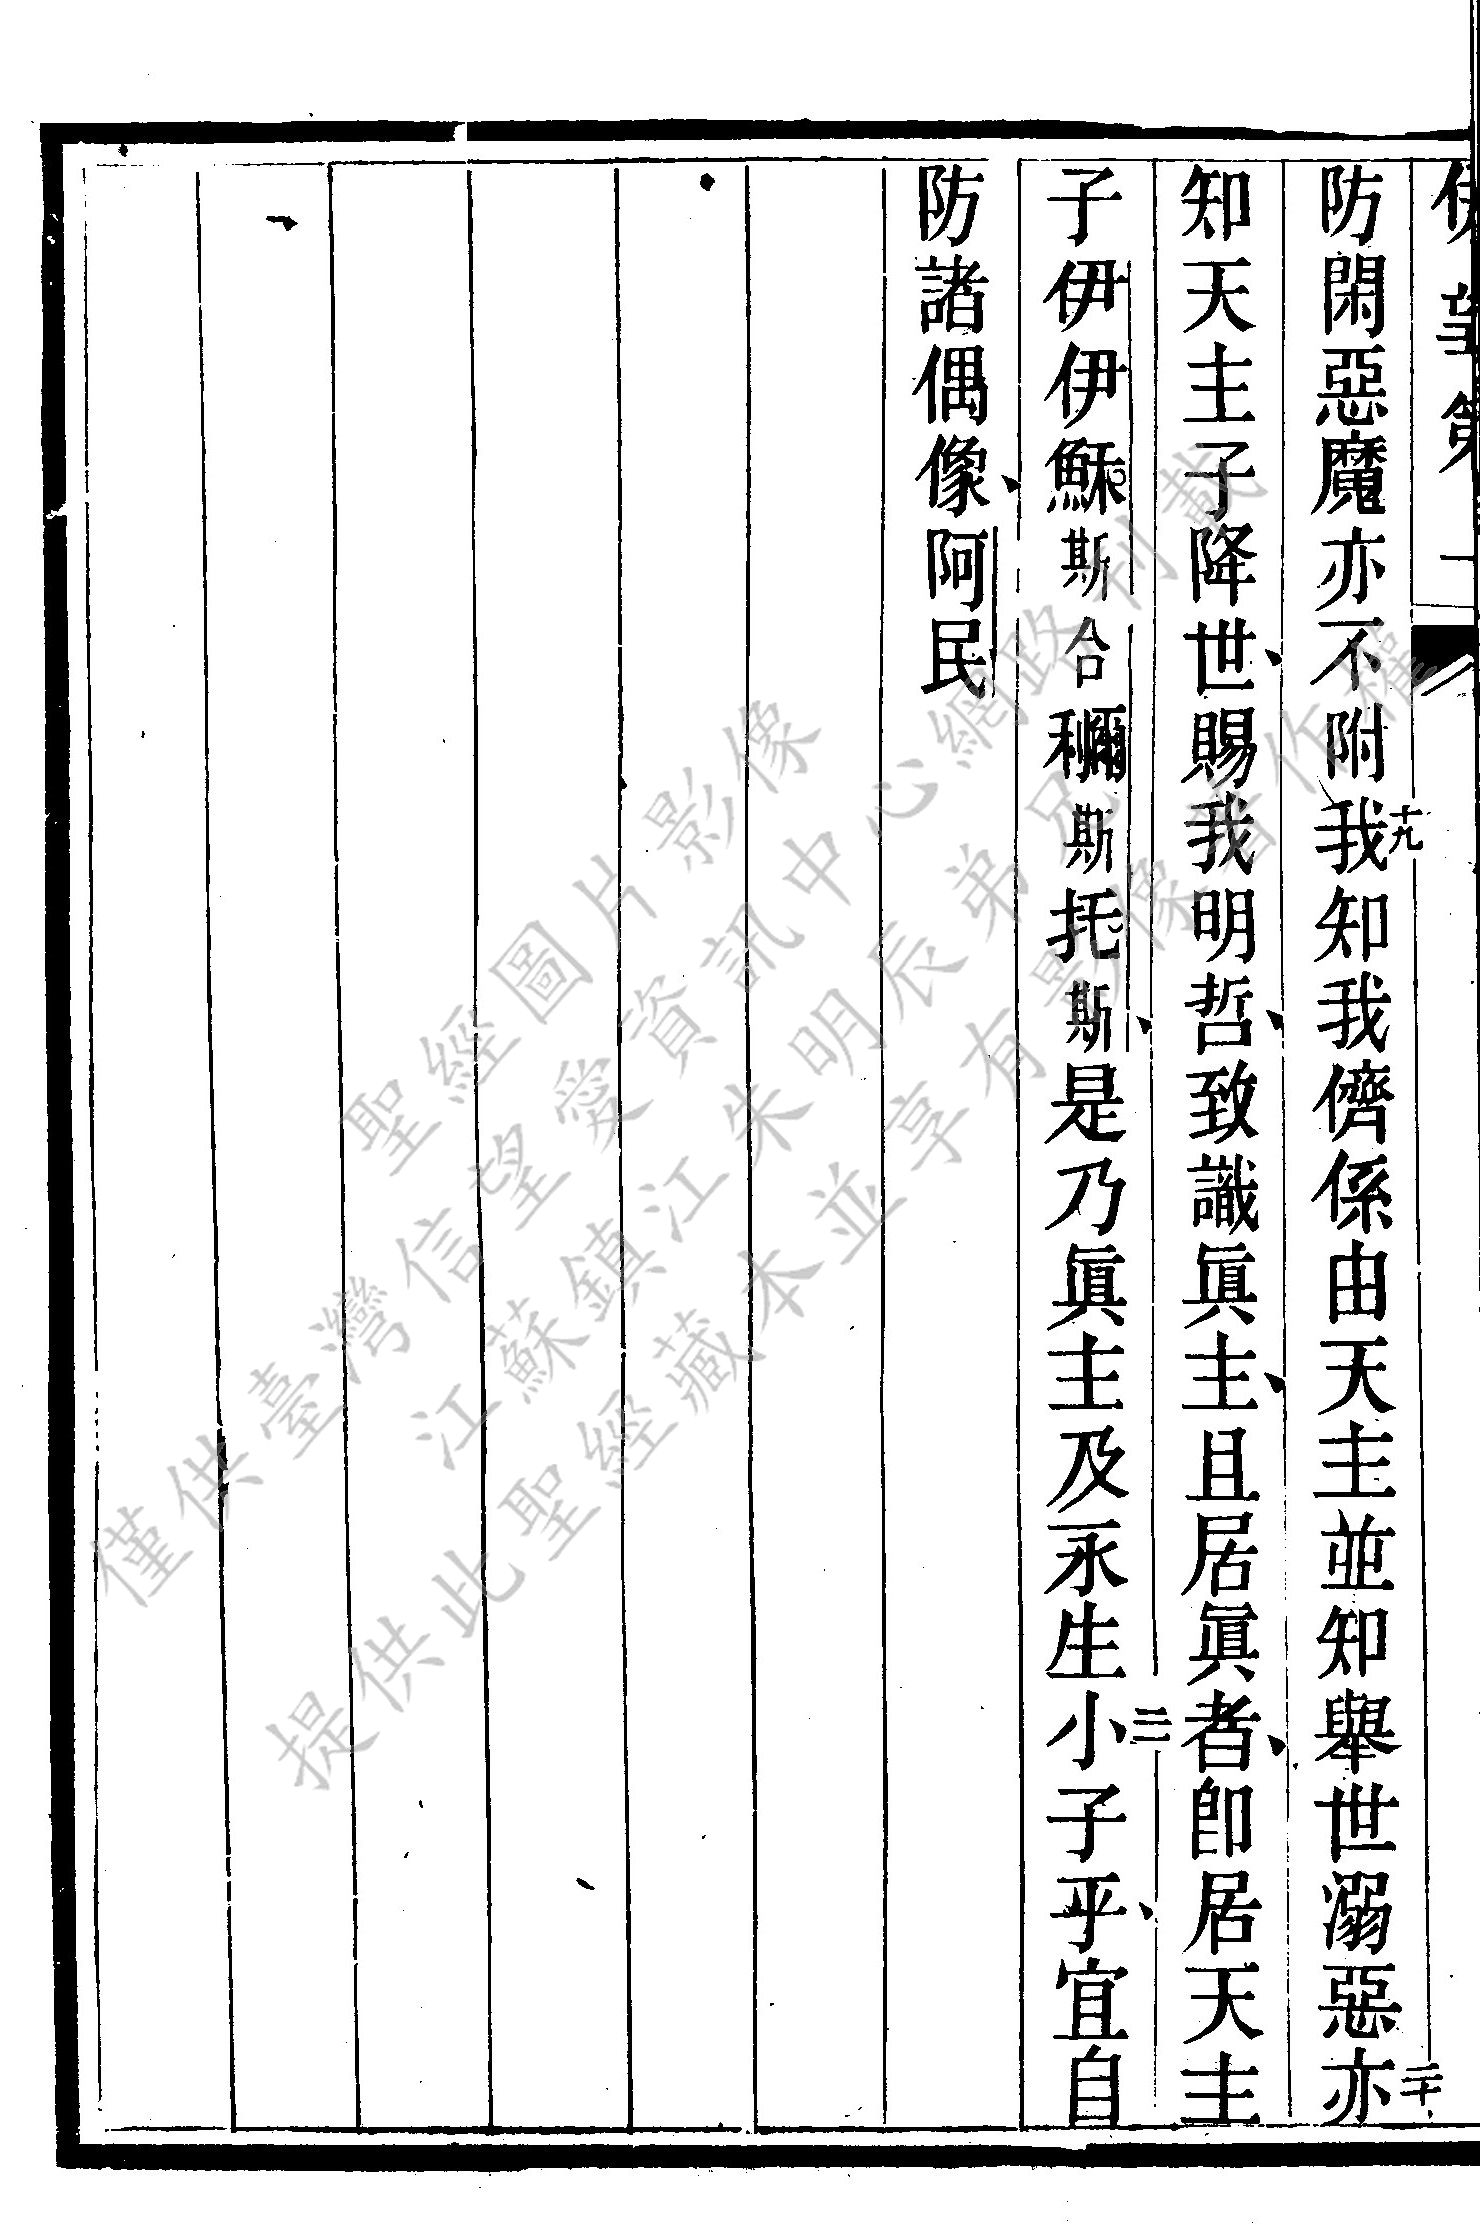 伊望第一
防閑惡魔亦不附十九我知我儕係由天主並知舉世溺惡二十亦
知天主子降世、賜我明哲、致識眞主、且居眞者、卽居天主
子伊伊穌斯合利爾斯托斯、是乃眞主及永生二一小子乎、宜自
防諸偶像、阿民
聖經圖片影像
僅供臺灣信望愛資訊中心網路刊載
江蘇鎮江朱明辰弟兄
提供此聖經藏本並享有影像著作權